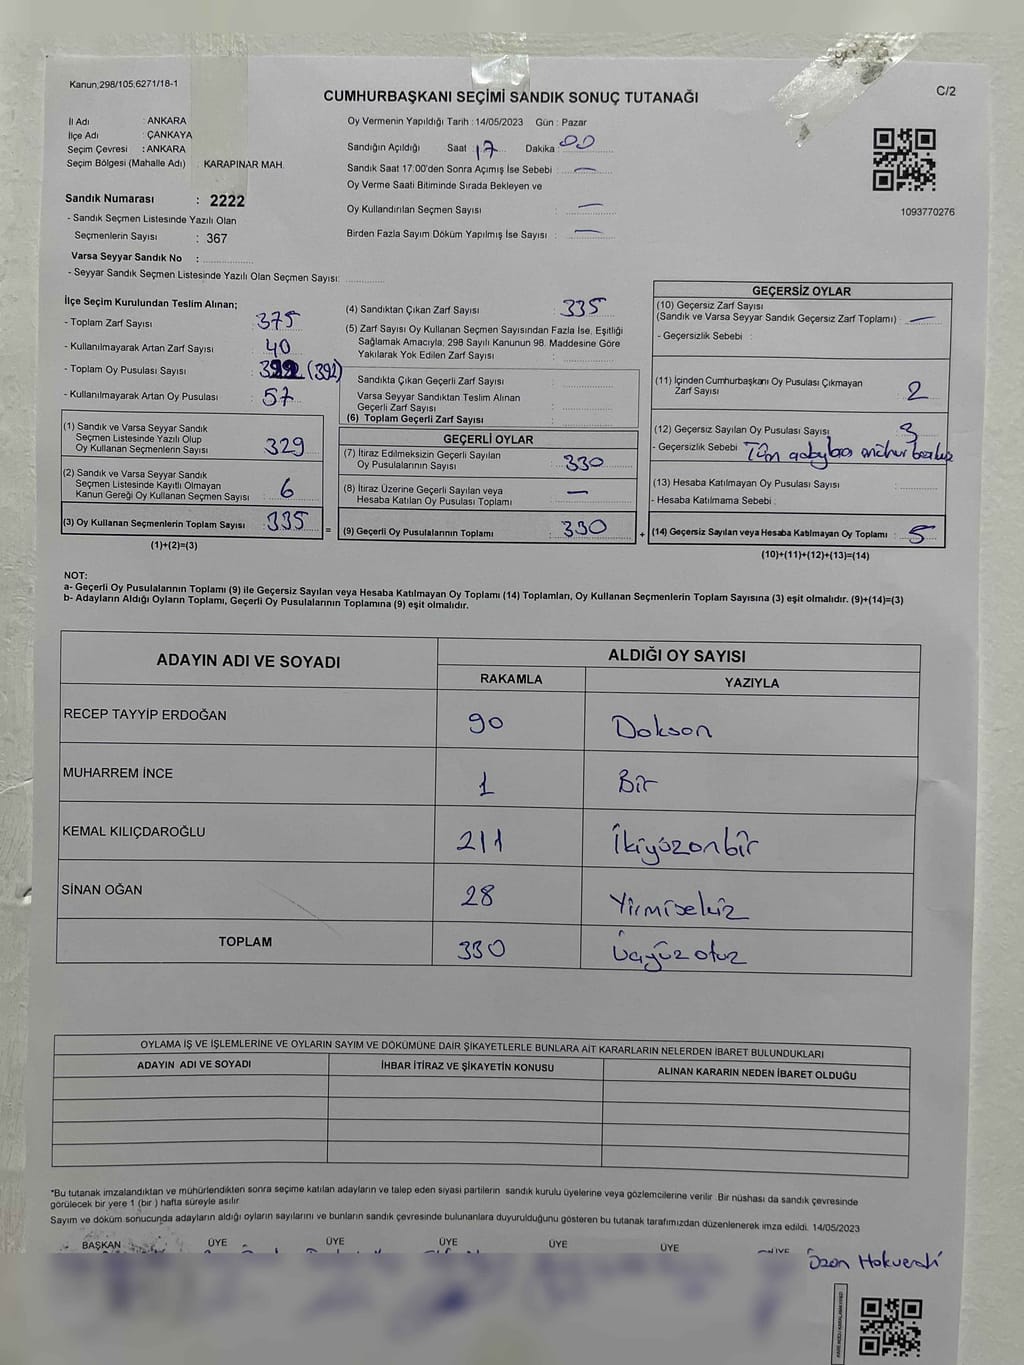 Kanun,298/105,6271/18-1
C/2
CUMHURBAŞKANI SEÇİMİ SANDIK SONUÇ TUTANAĞI
İl Adı : ANKARA
İlçe Adı : ÇANKAYA
Seçim Çevresi : ANKARA
Seçim Bölgesi (Mahalle Adı) : KARAPINAR MAH.
Sandık Numarası : 2222
- Sandık Seçmen Listesinde Yazılı Olan
Seçmenlerin Sayısı : 367
Varsa Seyyar Sandık No :
- Seyyar Sandık Seçmen Listesinde Yazılı Olan Seçmen Sayısı:
Oy Vermenin Yapıldığı Tarih : 14/05/2023 Gün : Pazar
Sandığın Açıldığı Saat : 17 Dakika : 00
Sandık Saat 17:00'den Sonra Açımış İse Sebebi : —
Oy Verme Saati Bitiminde Sırada Bekleyen ve
Oy Kullandırılan Seçmen Sayısı : —
Birden Fazla Sayım Döküm Yapılmış İse Sayısı : —
1093770276
İlçe Seçim Kurulundan Teslim Alınan;
- Toplam Zarf Sayısı : 375
- Kullanılmayarak Artan Zarf Sayısı : 40
- Toplam Oy Pusulası Sayısı : 392 (392)
- Kullanılmayarak Artan Oy Pusulası : 57
(1) Sandık ve Varsa Seyyar Sandık
Seçmen Listesinde Yazılı Olup
Oy Kullanan Seçmenlerin Sayısı : 329
(2) Sandık ve Varsa Seyyar Sandık
Seçmen Listesinde Kayıtlı Olmayan
Kanun Gereği Oy Kullanan Seçmen Sayısı : 6
(3) Oy Kullanan Seçmenlerin Toplam Sayısı : 335
(1)+(2)=(3)
(4) Sandıktan Çıkan Zarf Sayısı : 335
(5) Zarf Sayısı Oy Kullanan Seçmen Sayısından Fazla İse, Eşitliği
Sağlamak Amacıyla; 298 Sayılı Kanunun 98. Maddesine Göre
Yakılarak Yok Edilen Zarf Sayısı :
Sandıkta Çıkan Geçerli Zarf Sayısı :
Varsa Seyyar Sandıktan Teslim Alınan
Geçerli Zarf Sayısı :
(6) Toplam Geçerli Zarf Sayısı :
GEÇERLİ OYLAR
(7) İtiraz Edilmeksizin Geçerli Sayılan
Oy Pusulalarının Sayısı : 330
(8) İtiraz Üzerine Geçerli Sayılan veya
Hesaba Katılan Oy Pusulası Toplamı : —
= (9) Geçerli Oy Pusulalarının Toplamı : 330
GEÇERSİZ OYLAR
(10) Geçersiz Zarf Sayısı
(Sandık ve Varsa Seyyar Sandık Geçersiz Zarf Toplamı) : —
- Geçersizlik Sebebi :
(11) İçinden Cumhurbaşkanı Oy Pusulası Çıkmayan
Zarf Sayısı : 2
(12) Geçersiz Sayılan Oy Pusulası Sayısı : 3
- Geçersizlik Sebebi : Tüm mühür
(13) Hesaba Katılmayan Oy Pusulası Sayısı :
- Hesaba Katılmama Sebebi :
+ (14) Geçersiz Sayılan veya Hesaba Katılmayan Oy Toplamı : 5
(10)+(11)+(12)+(13)=(14)
NOT:
a- Geçerli Oy Pusulalarının Toplamı (9) ile Geçersiz Sayılan veya Hesaba Katılmayan Oy Toplamı (14) Toplamları, Oy Kullanan Seçmenlerin Toplam Sayısına (3) eşit olmalıdır. (9)+(14)=(3)
b- Adayların Aldığı Oyların Toplamı, Geçerli Oy Pusulalarının Toplamına (9) eşit olmalıdır.
ADAYIN ADI VE SOYADI ALDIĞI OY SAYISI
RAKAMLA YAZIYLA
RECEP TAYYİP ERDOĞAN 90 Doksan
MUHARREM İNCE 1 Bir
KEMAL KILIÇDAROĞLU 211 İkiyüzonbir
SİNAN OĞAN 28 Yirmisekiz
TOPLAM 330 Üçyüz otuz
OYLAMA İŞ VE İŞLEMLERİNE VE OYLARIN SAYIM VE DÖKÜMÜNE DAİR ŞİKAYETLERLE BUNLARA AİT KARARLARIN NELERDEN İBARET BULUNDUKLARI
ADAYIN ADI VE SOYADI İHBAR İTİRAZ VE ŞİKAYETİN KONUSU ALINAN KARARIN NEDEN İBARET OLDUĞU
*Bu tutanak imzalandıktan ve mühürlendikten sonra seçime katılan adayların ve talep eden siyasi partilerin sandık kurulu üyelerine veya gözlemcilerine verilir. Bir nüshası da sandık çevresinde
görülecek bir yere 1 (bir ) hafta süreyle asılır
Sayım ve döküm sonucunda adayların aldığı oyların sayılarını ve bunların sandık çevresinde bulunanlara duyurulduğunu gösteren bu tutanak tarafımızdan düzenlenerek imza edildi. 14/05/2023
BAŞKAN ÜYE ÜYE ÜYE ÜYE ÜYE